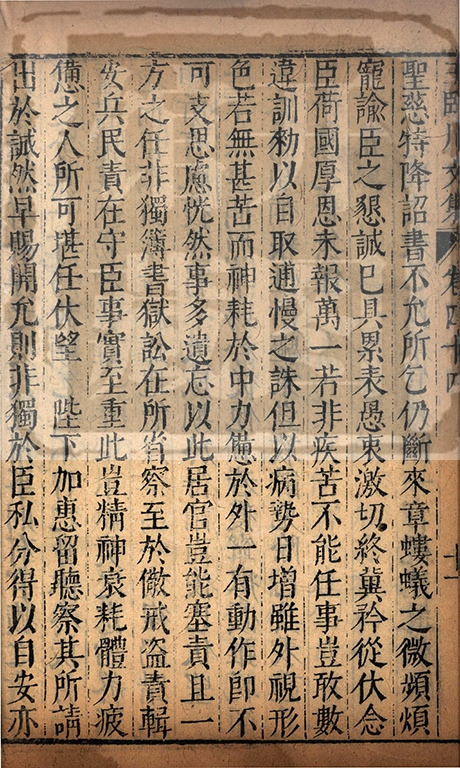 王臨川文集 卷四十四 十一
聖慈特降詔書不允所乞仍斷來章螻蟻之微頻煩
寵諭臣之懇誠已具累表愚衷激切終冀矜從伏念
臣荷國厚恩未報萬一若非疾苦不能任事豈敢數
違訓勑以自取逋慢之誅但以病勢日增雖外視形
色若無甚苦而神耗於中力憊於外一有動作即不
可支思慮恍然事多遺忘以此居官豈能塞責且一
方之任非獨簿書獄訟在所省察至於儆戒盜責輯
安兵民責在守臣事實至重此豈精神衰耗體力疲
憊之人所可堪任伏望 陛下加惠留聽察其所請
出於誠然早賜開允則非獨於臣私分得以自安亦